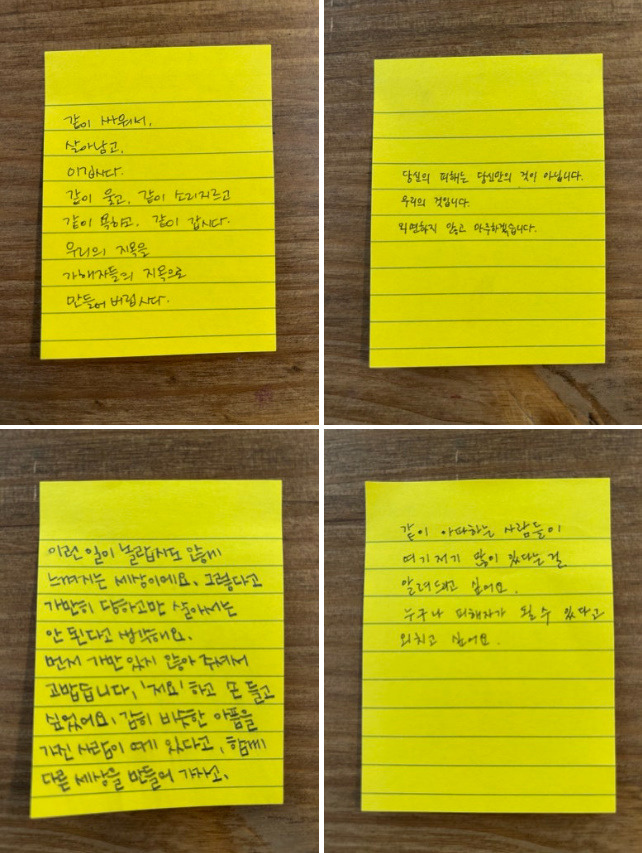 같이 싸워서,
살아남고,
이깁시다.
같이 울고, 같이 소리지르고
같이 욕하고, 같이 갑시다.
우리의 지옥을
가해자들의 지옥으로
만들어 버립시다.
당신의 피해는 당신만의 것이 아닙니다.
우리의 것입니다.
외면하지 않고 마주하겠습니다.
이런 일이 놀랍지도 않게
느껴지는 세상이에요. 그렇다고
가만히 당하고만 살아서는
안 된다고 생각해요.
먼저 가만 있지 않아 주셔서
고맙습니다. '저요' 하고 손 들고
싶었어요. 감히 비슷한 아픔을
가진 사람이 여기 있다고, 함께
다른 세상을 만들어 가자고.
같이 아파하는 사람들이
여기저기 많이 있다는 걸
알려드리고 싶어요.
누구나 피해자가 될 수 있다고
외치고 싶어요.